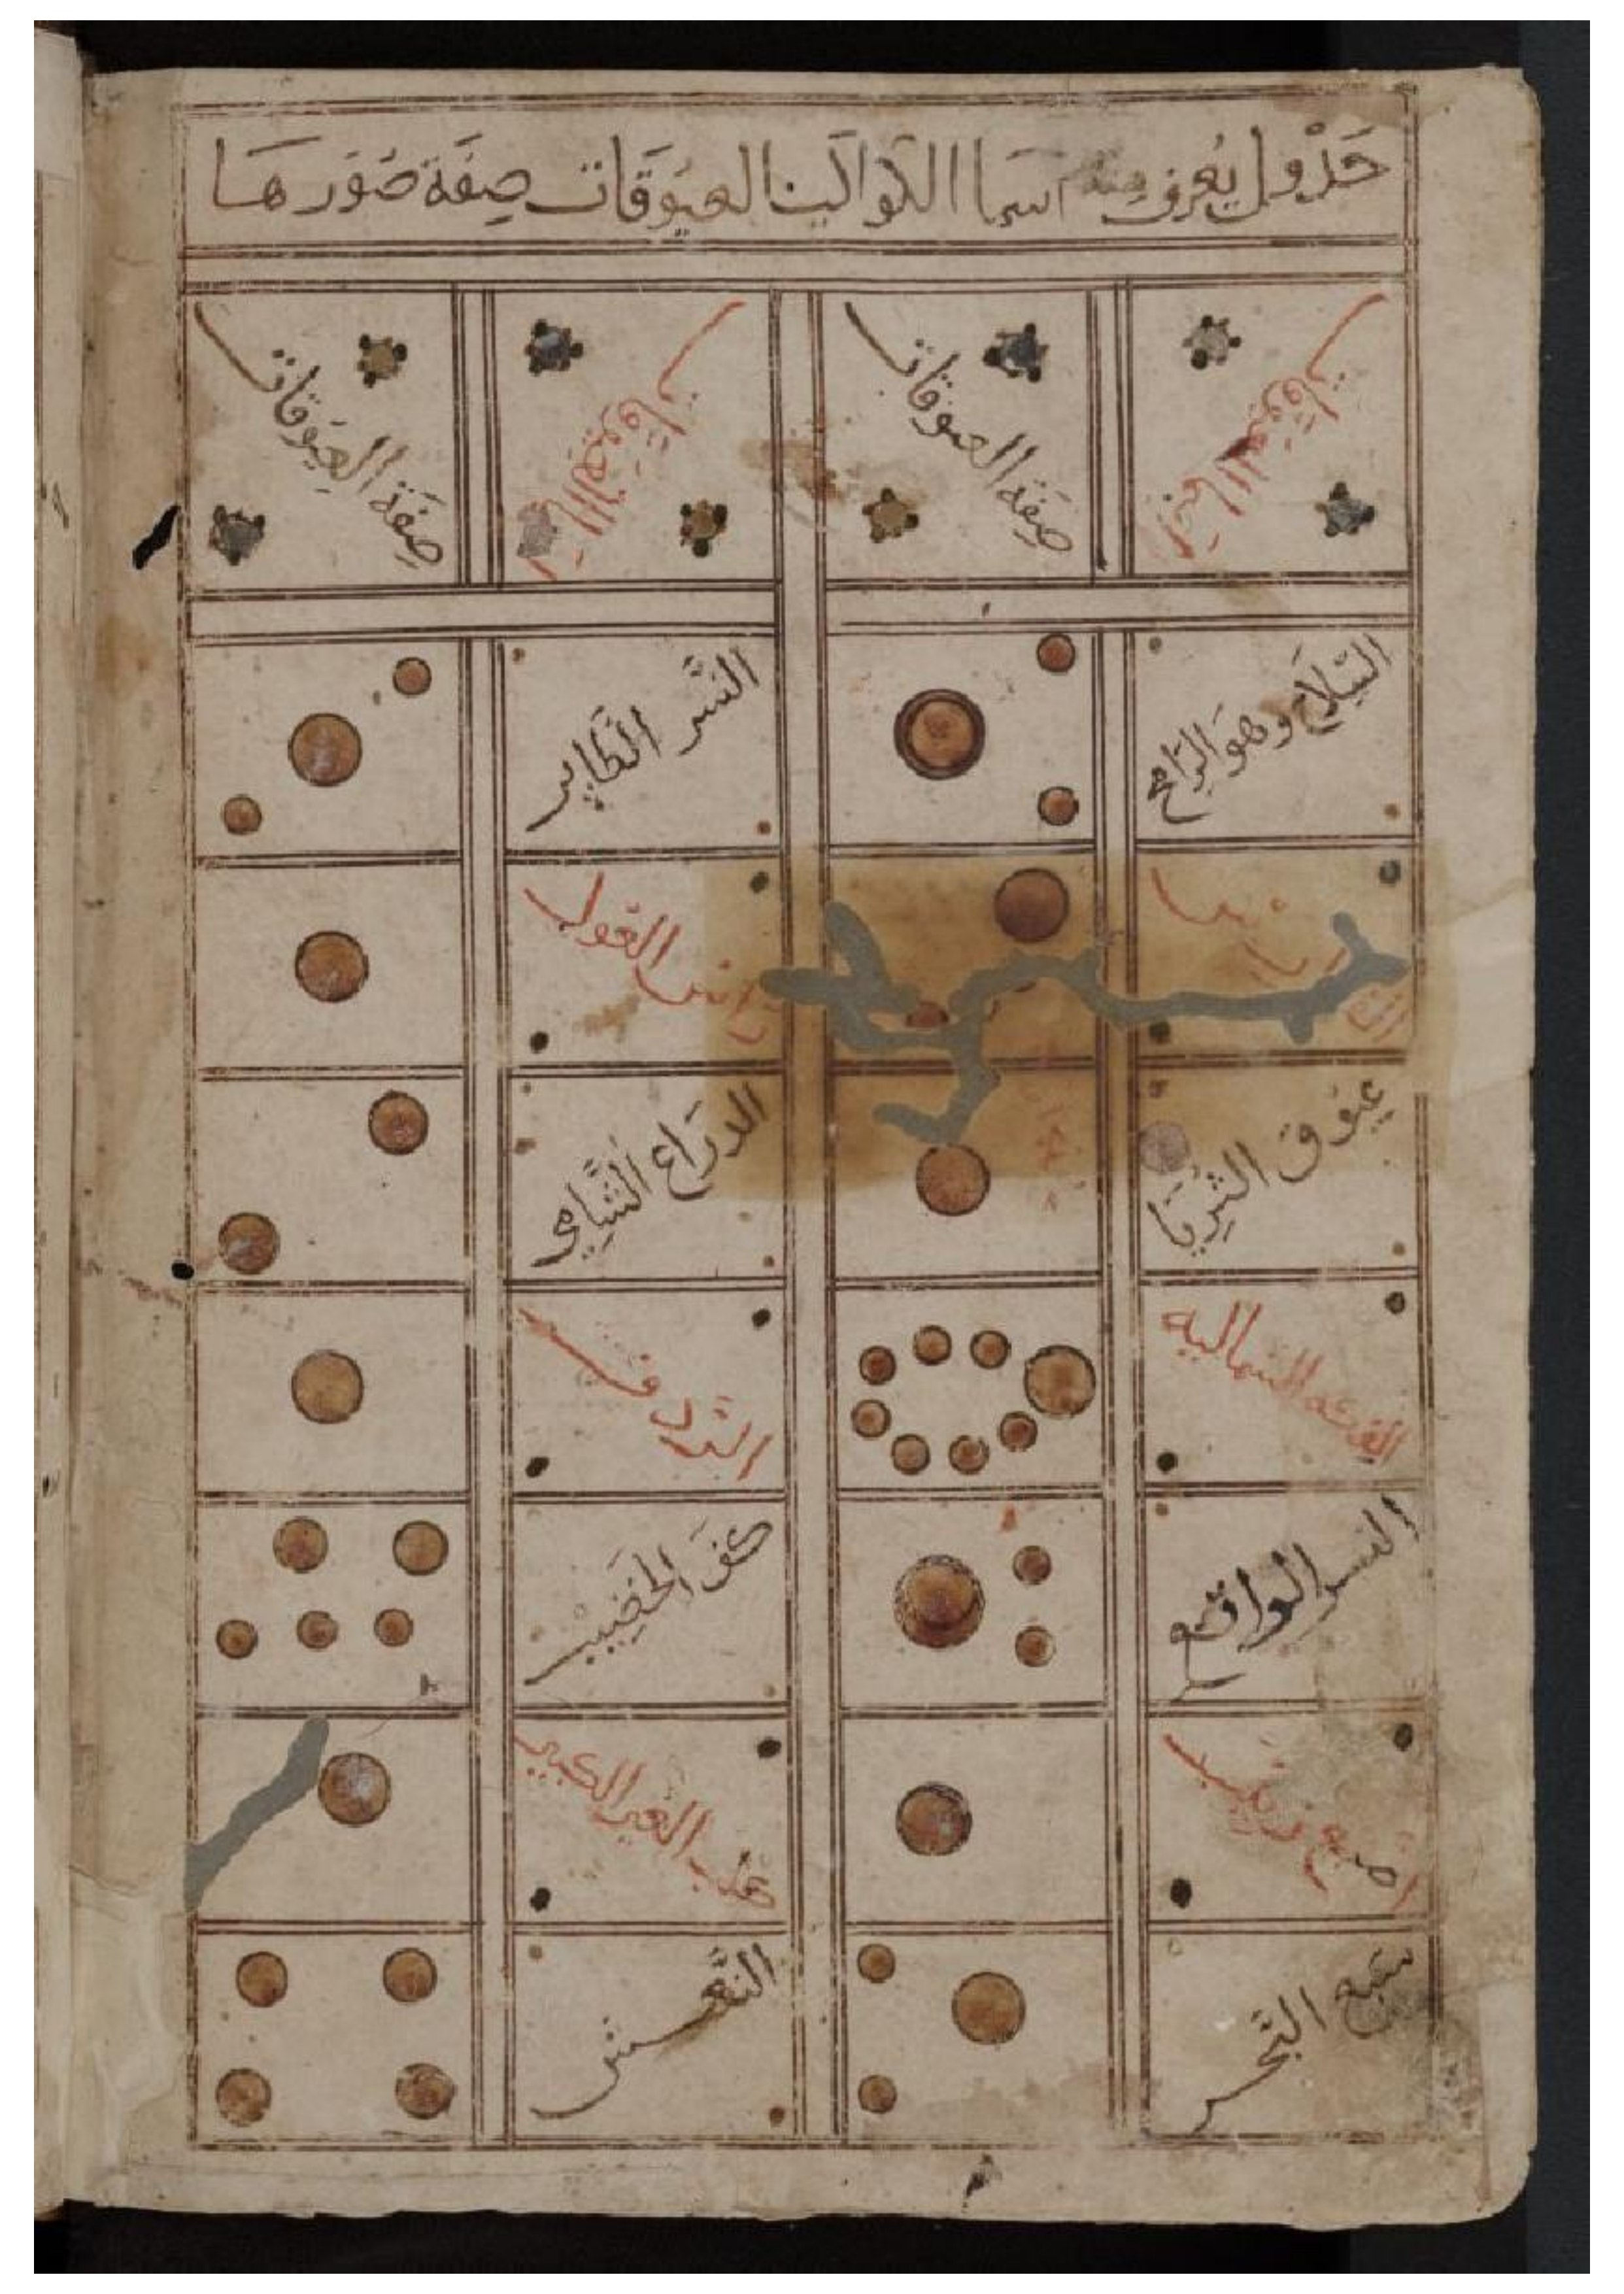 جَدْول يُعرف منه اسما الكواكب العيوقات صِفَة صُوَرها
اسما العيوقات
صفة العيوقات
اسما العيوقات
صِفَة العيوقات
السّماك وهو الرامح
النَّسر الطَّاير
راس الغول
عيوق الثريا
الدراع الشَّامي
الفكه الشماليه
الردف
النسر الواقع
كف الخَضيب
قلب العير الكبير
سبع البَّحر
النَّعش